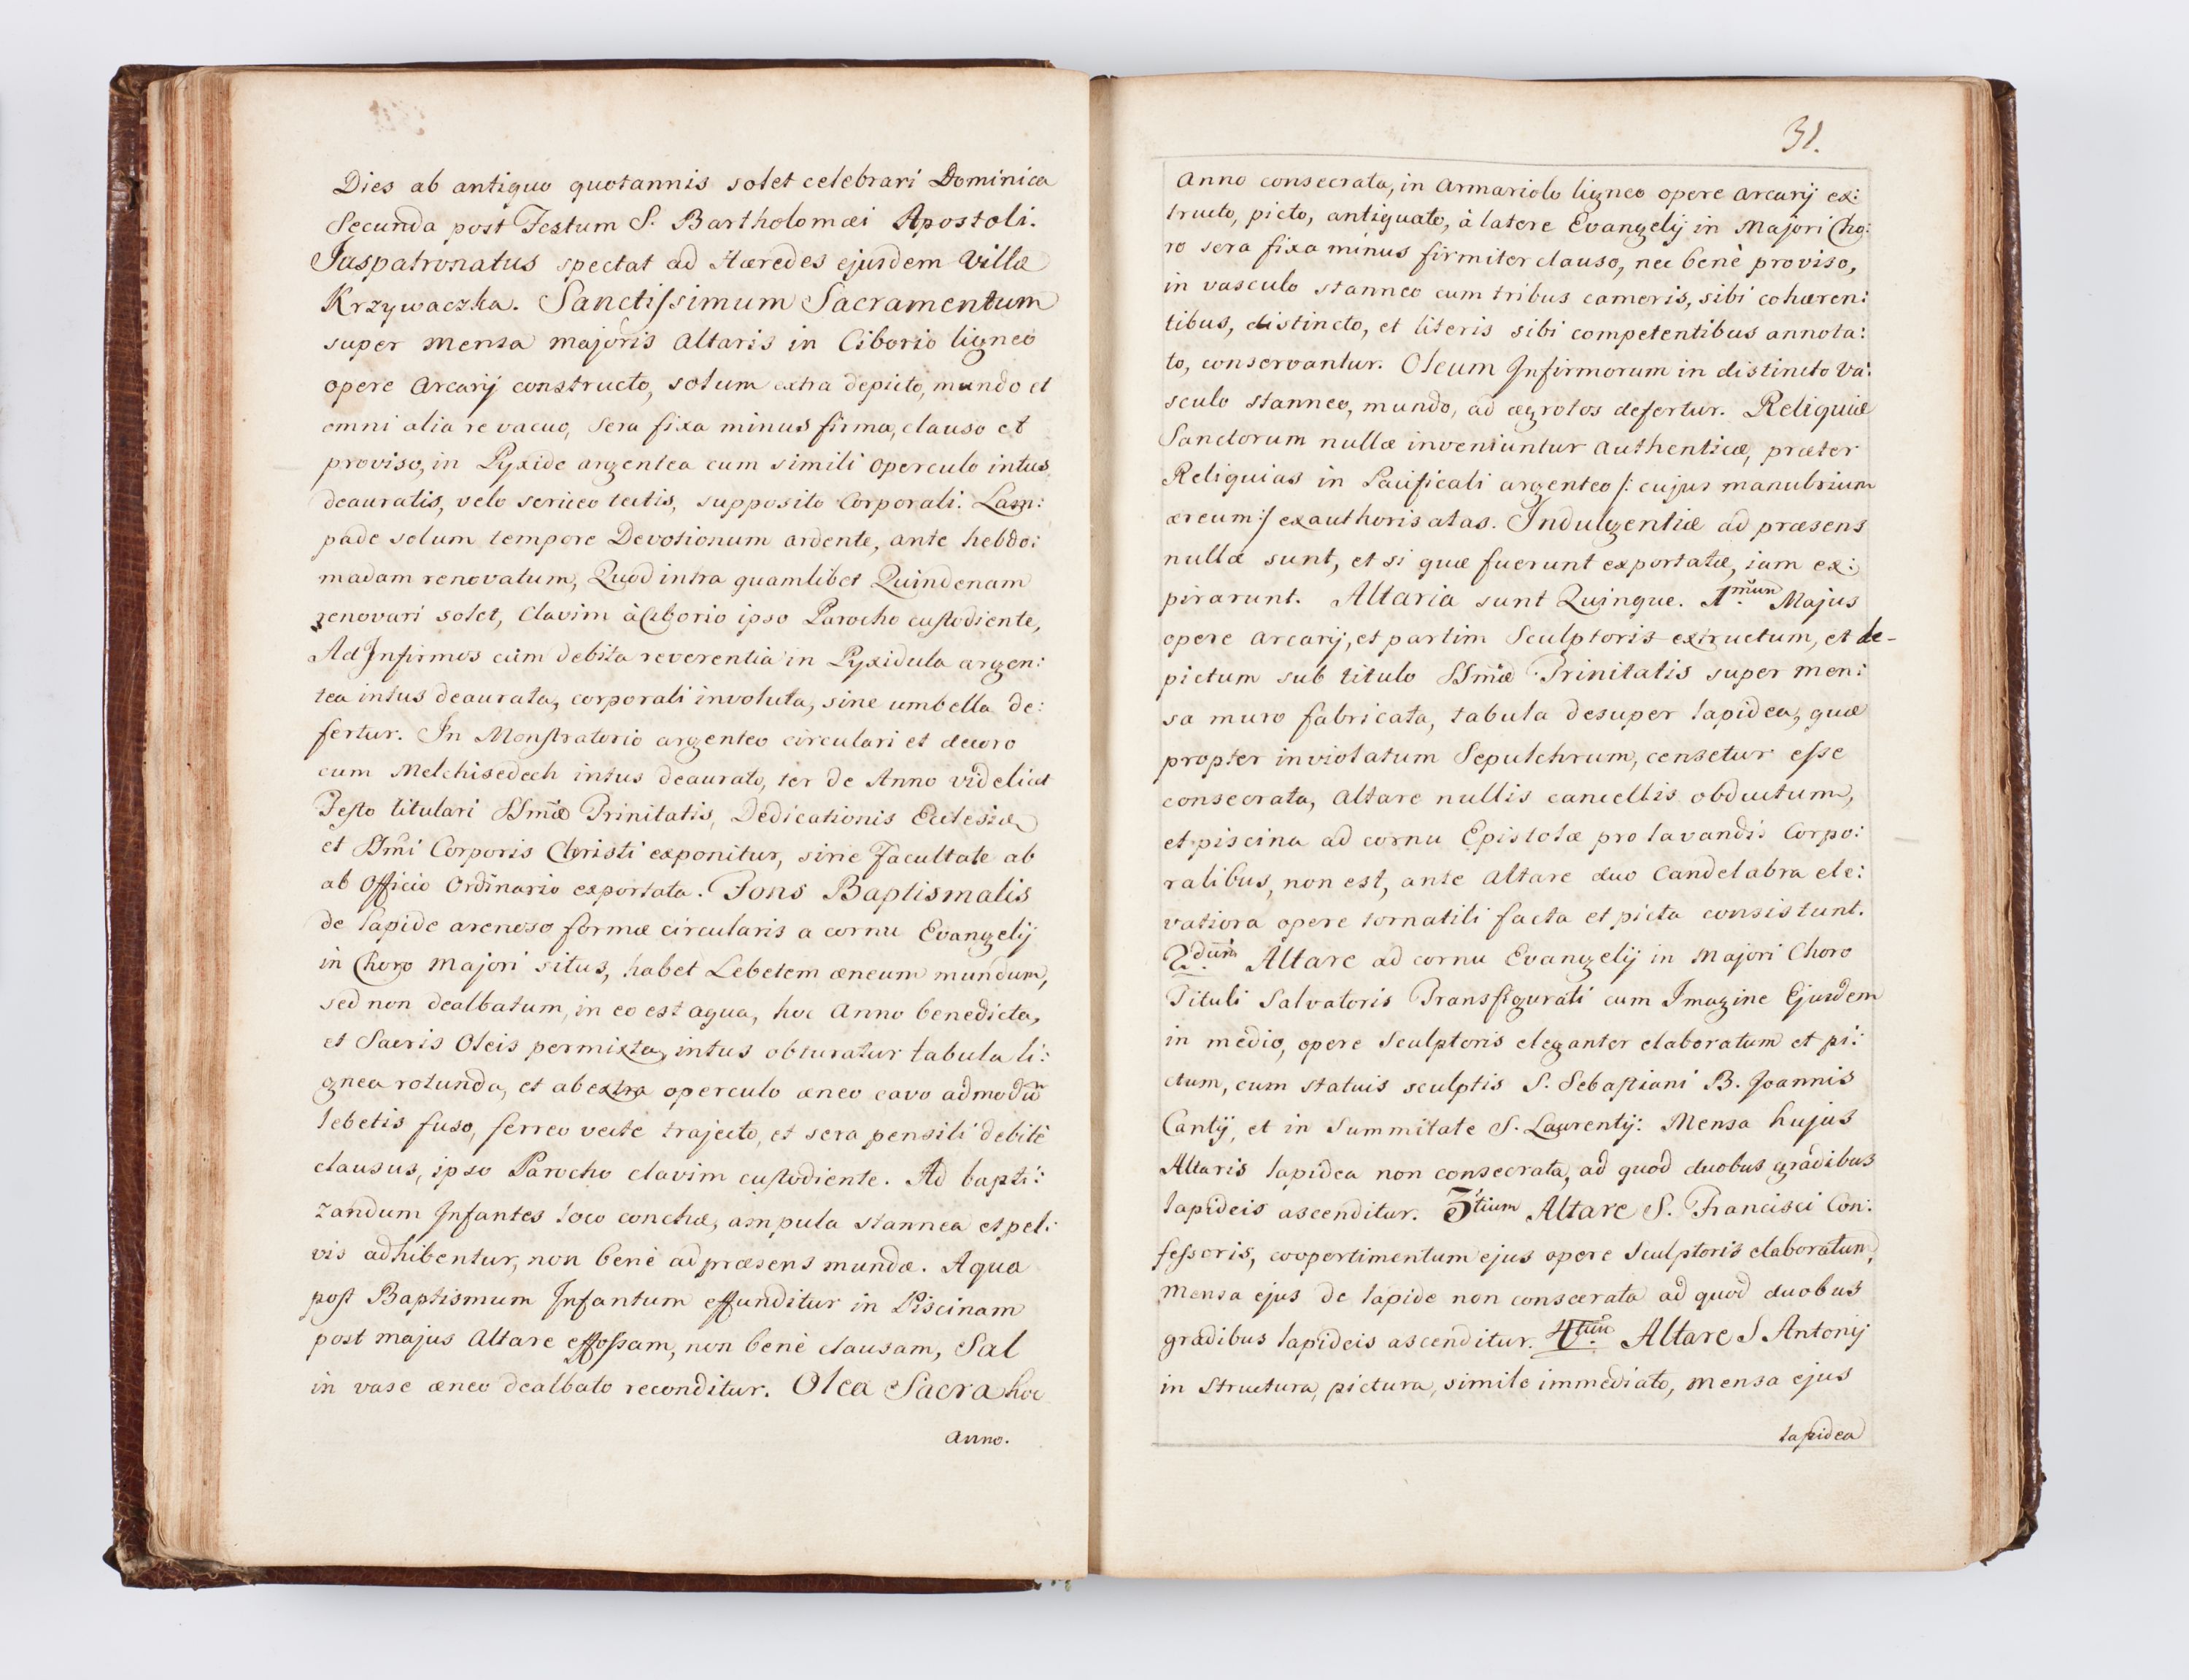 Dies ab antiquo quotannis solet celebrari Dominica
Secunda post Festum S. Bartholomæi Apostoli.
Juspatronatus spectat ad Hæredes ejusdem Villæ
Krzywaczka. Sanctissimum Sacramentum
super mensa majoris Altaris in Ciborio ligneo
opere Arcarij constructo, solum extra depicto, mundo et
omni alia re vacuo, Sera fixa minus firma, clauso et
proviso, in Pyxide argentea cum simili operculo intus
deauratis, velo sericeo tectis, supposito Corporali. Lam:
pade solum tempore Devotionum ardente, ante hebdo:
madam renovatum, Quod intra quamlibet Quindenam
renovari solet, Clavim à Ciborio ipso Parocho custodiente,
Ad Infirmos cùm debita reverentia in Pyxidula argen:
tea intus deaurata, corporali involuta, sine umbella de:
fertur. In Monstratorio argenteo circulari et decoro
cum Melchisedech intus deaurato, ter de Anno videlicet
Festo titulari SSm̃æ Trinitatis, Dedicationis Ecclesiæ
et SSm̃i Corporis Christi exponitur, sine Facultate ab
ab Officio Ordinario exportata. Fons Baptismalis
de lapide arenoso formæ circularis a cornu Evangelij
in Choro Majori situs, habet Lebetem æneum mundum,
sed non dealbatum, in eo est aqua, hoc Anno benedicta,
et Sacris Oleis permixta, intus obturatur tabula li:
gnea rotunda, et ab extra operculo æneo cavo admodũ
lebetis fuso, ferreo vecte trajecto, et sera pensili debitè
clausus, ipso Parocho clavim custodiente. Ad bapti:
zandum Infantes loco conchæ, ampula stannea et pel:
vis adhibentur, non benè ad præsens mundæ. Aqua
post Baptismum Infantum effunditur in Piscinam
post majus Altare effossam, non benè clausam, Sal
in vase æneo dealbato reconditur. Olea Sacra hoc
anno.
31.
Anno consecrata, in Armariolo ligneo opere Arcarij ex:
tructo, picto, antiquato, à latere Evangelij in Majori Cho:
ro sera fixa minus firmiter clauso, nec benè proviso,
in vasculo stanneo cum tribus cameris, sibi cohæren:
tibus, distincto, et literis sibi competentibus annota:
to, conservantur. Oleum Infirmorum in distincto va:
sculo stanneo, mundo, ad ægrotos defertur. Reliquiæ
Sanctorum nullæ inveniuntur Authenticæ, præter
Reliquias in Pacificali argenteo /: cujus manubrium
æreum :/ exauthorisatas. Indulgentiæ ad præsens
nullæ sunt, et si quæ fuerunt exportatæ, iam ex:
pirarunt. Altaria sunt Quinque. 1mum Majus
opere Arcarij, et partim Sculptoris extructum, et de-
pictum sub titulo SSm̃æ Trinitatis super men:
sa muro fabricata, tabula desuper lapidea, quæ
propter inviolatum Sepulchrum, censetur esse
consecrata, Altare nullis cancellis obductum,
et piscina ad cornu Epistolæ pro lavandis Corpo:
ralibus, non est, ante Altare duo Candelabra ele:
vatiora opere tornatili facta et picta consistunt.
2.dum Altare ad cornu Evangelij in Majori Choro
Tituli Salvatoris Transfigurati cum Imagine Ejusdem
in medio, opere Sculptoris eleganter elaboratum et pi:
ctum, cum statuis sculptis S. Sebastiani B. Joannis
Cantij, et in Summitate S. Laurentij: Mensa hujus
Altaris lapidea non consecrata, ad quod duobus gradibus
lapideis ascenditur. 3tium Altare S. Francisci Con:
fessoris, coopertimentum ejus opere Sculptoris elaboratum,
Mensa ejus de lapide non consecrata ad quod duobus
gradibus lapideis ascenditur. 4tum Altare S Antonij
in Structura, pictura, simile immediato, Mensa ejus
lapidea